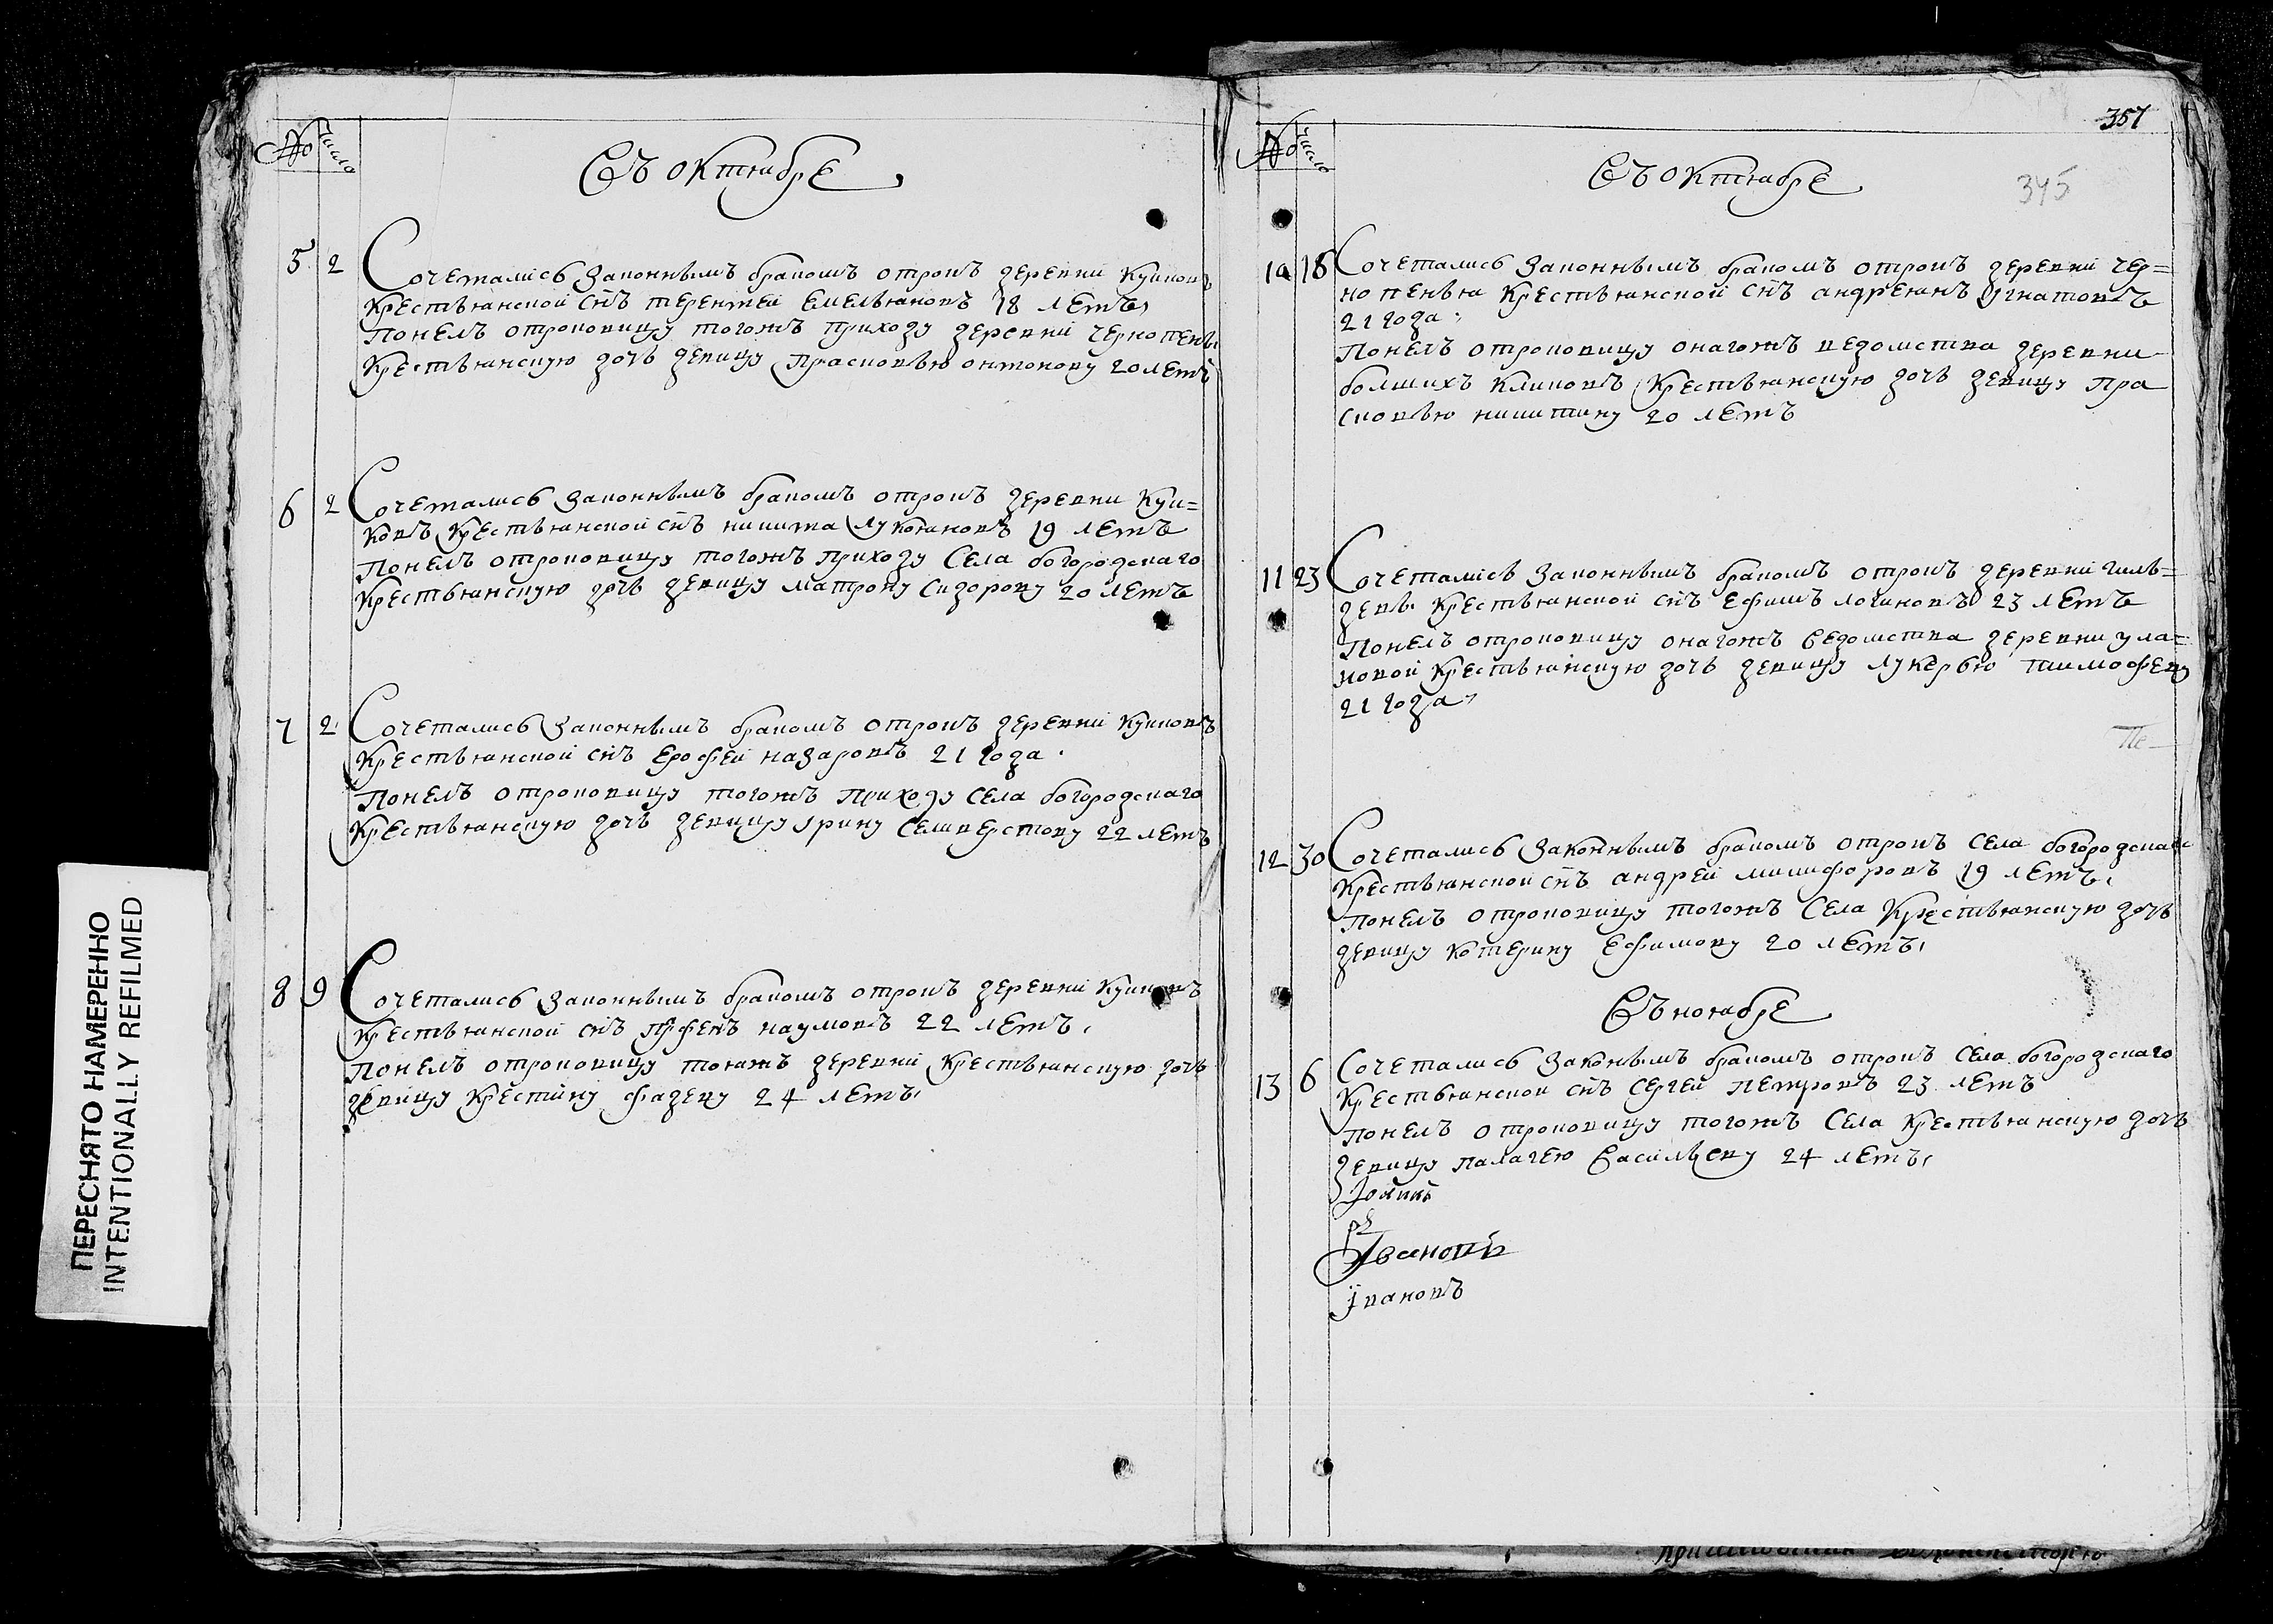 № число
Въ октябрѣ
5 2 Сочетались законнымъ бракомъ отрокъ деревни Куюковъ
крестьянской сн҃ъ терентей емельяновъ 18 летъ
Понелъ отроковицу тогожъ приходу деревни чернопенья
крестьянскую дочь девицу прасковью онтонову 20 летъ
6 2 Сочетались законнымъ бракомъ отрокъ деревни Кую=
ковъ крестьянской сн҃ъ никита лукояновъ 19 летъ
Понелъ отроковицу тогожъ приходу села богородскаго
крестьянскую дочь девицу матрону сидорову 20 летъ
7 2 Сочетались законнымъ бракомъ отрокъ деревни Куюковъ
крестьянской сн҃ъ ерофей назаровъ 21 года
Понелъ отроковицу тогожъ приходу села богородскаго
крестьянскую дочь девицу ирину селиверстову 22 летъ
8 9 Сочетались законнымъ бракомъ отрокъ деревни Куюковъ
крестьянской сн҃ъ наумовъ 22 летъ
Понелъ отроковицу тояжъ деревни крестьянскую дочь
девицу крестину фадеву 24 летъ
ПЕРЕСНЯТО НАМЕРЕННО
INTENTIONALLY REFILMED
357
№ число
Въ октябрѣ
345
10 18 Сочетались законнымъ бракомъ отрокъ деревни чер=
нопенья крестьянской сн҃ъ андреянъ игнатовъ
21 года
Понелъ отроковицу онагожъ ведомства деревни
болшихъ климовъ крестьянскую дочь девицу пра
сковью никитину 20 летъ
11 23 Сочетались законнымъ бракомъ отрокъ деревни гиль=
крестьянской сн҃ъ ефимъ логиновъ 23 летъ
Понелъ отроковицу онагожъ ведомства деревни ула=
новой крестьянскую дочь девицу лукерью тимофеву
21 года
12 30 Сочетались законнымъ бракомъ отрокъ села богородскаго
крестьянской сн҃ъ андрей микифоровъ 19 летъ
Понелъ отроковицу тогожъ села крестьянскую дочь
девицу котерину ефимову 20 летъ
Въ ноябрѣ
13 6 Сочетались законнымъ бракомъ отрокъ села богородскаго
крестьянской сн҃ъ сергей петровъ 23 летъ
понелъ отроковицу тогожъ села крестьянскую дочь
девицу палагею васильеву 24 летъ
Ивановъ